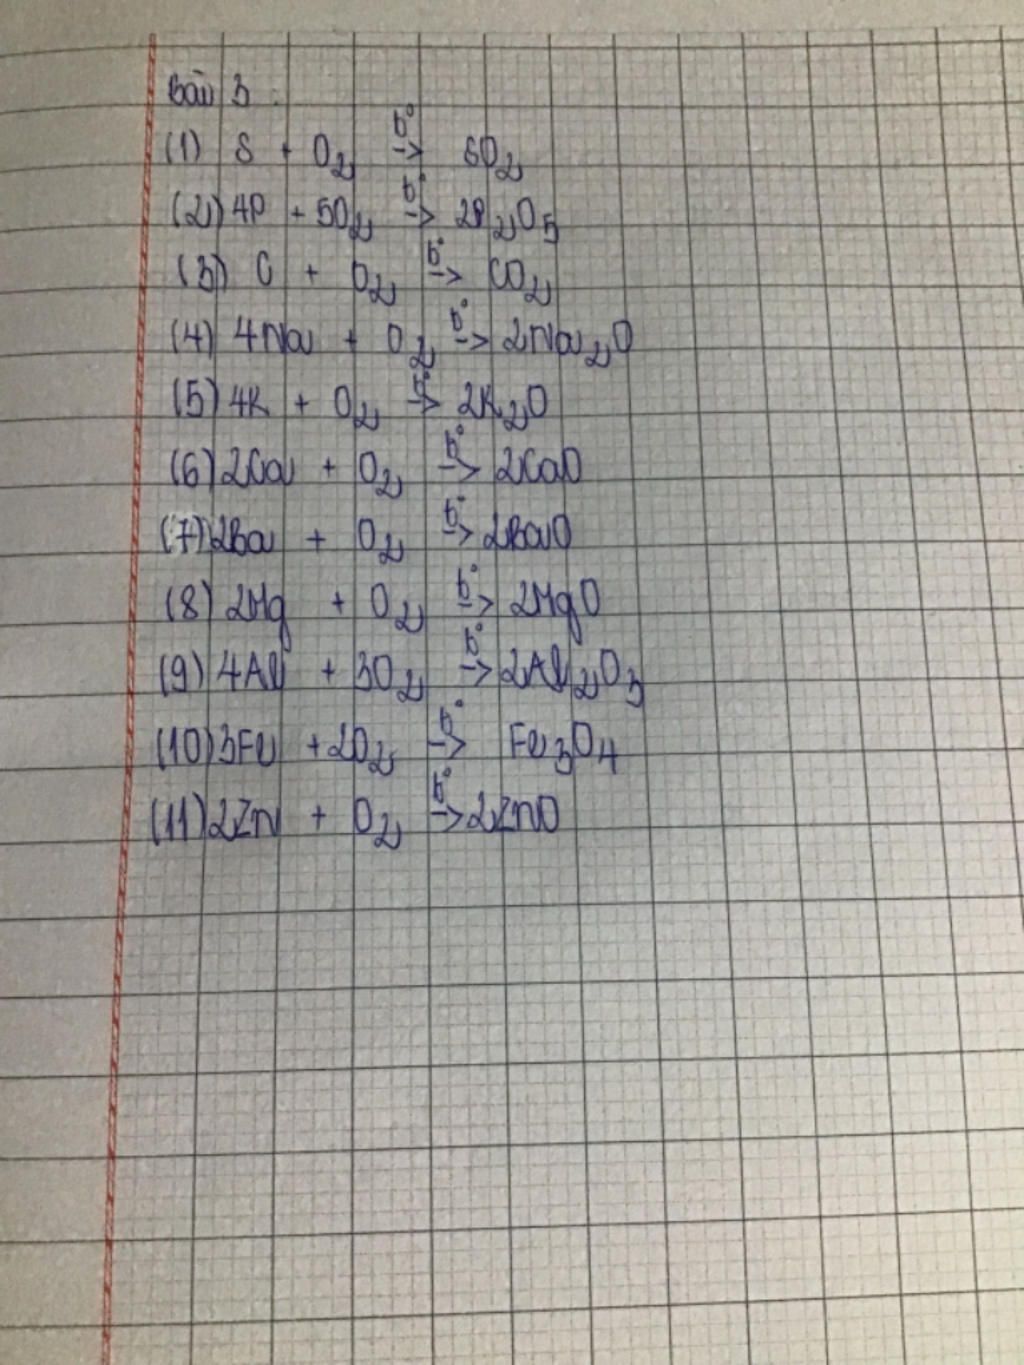 Bài 3:
(1) S + O₂ →t° SO₂
(2) 4P + 5O₂ →t° 2P₂O₅
(3) C + O₂ →t° CO₂
(4) 4Na + O₂ →t° 2Na₂O
(5) 4K + O₂ →t° 2K₂O
(6) 2Ca + O₂ →t° 2CaO
(7) 2Ba + O₂ →t° 2BaO
(8) 2Mg + O₂ →t° 2MgO
(9) 4Al + 3O₂ →t° 2Al₂O₃
(10) 3Fe + 2O₂ →t° Fe₃O₄
(11) 2Zn + O₂ →t° 2ZnO